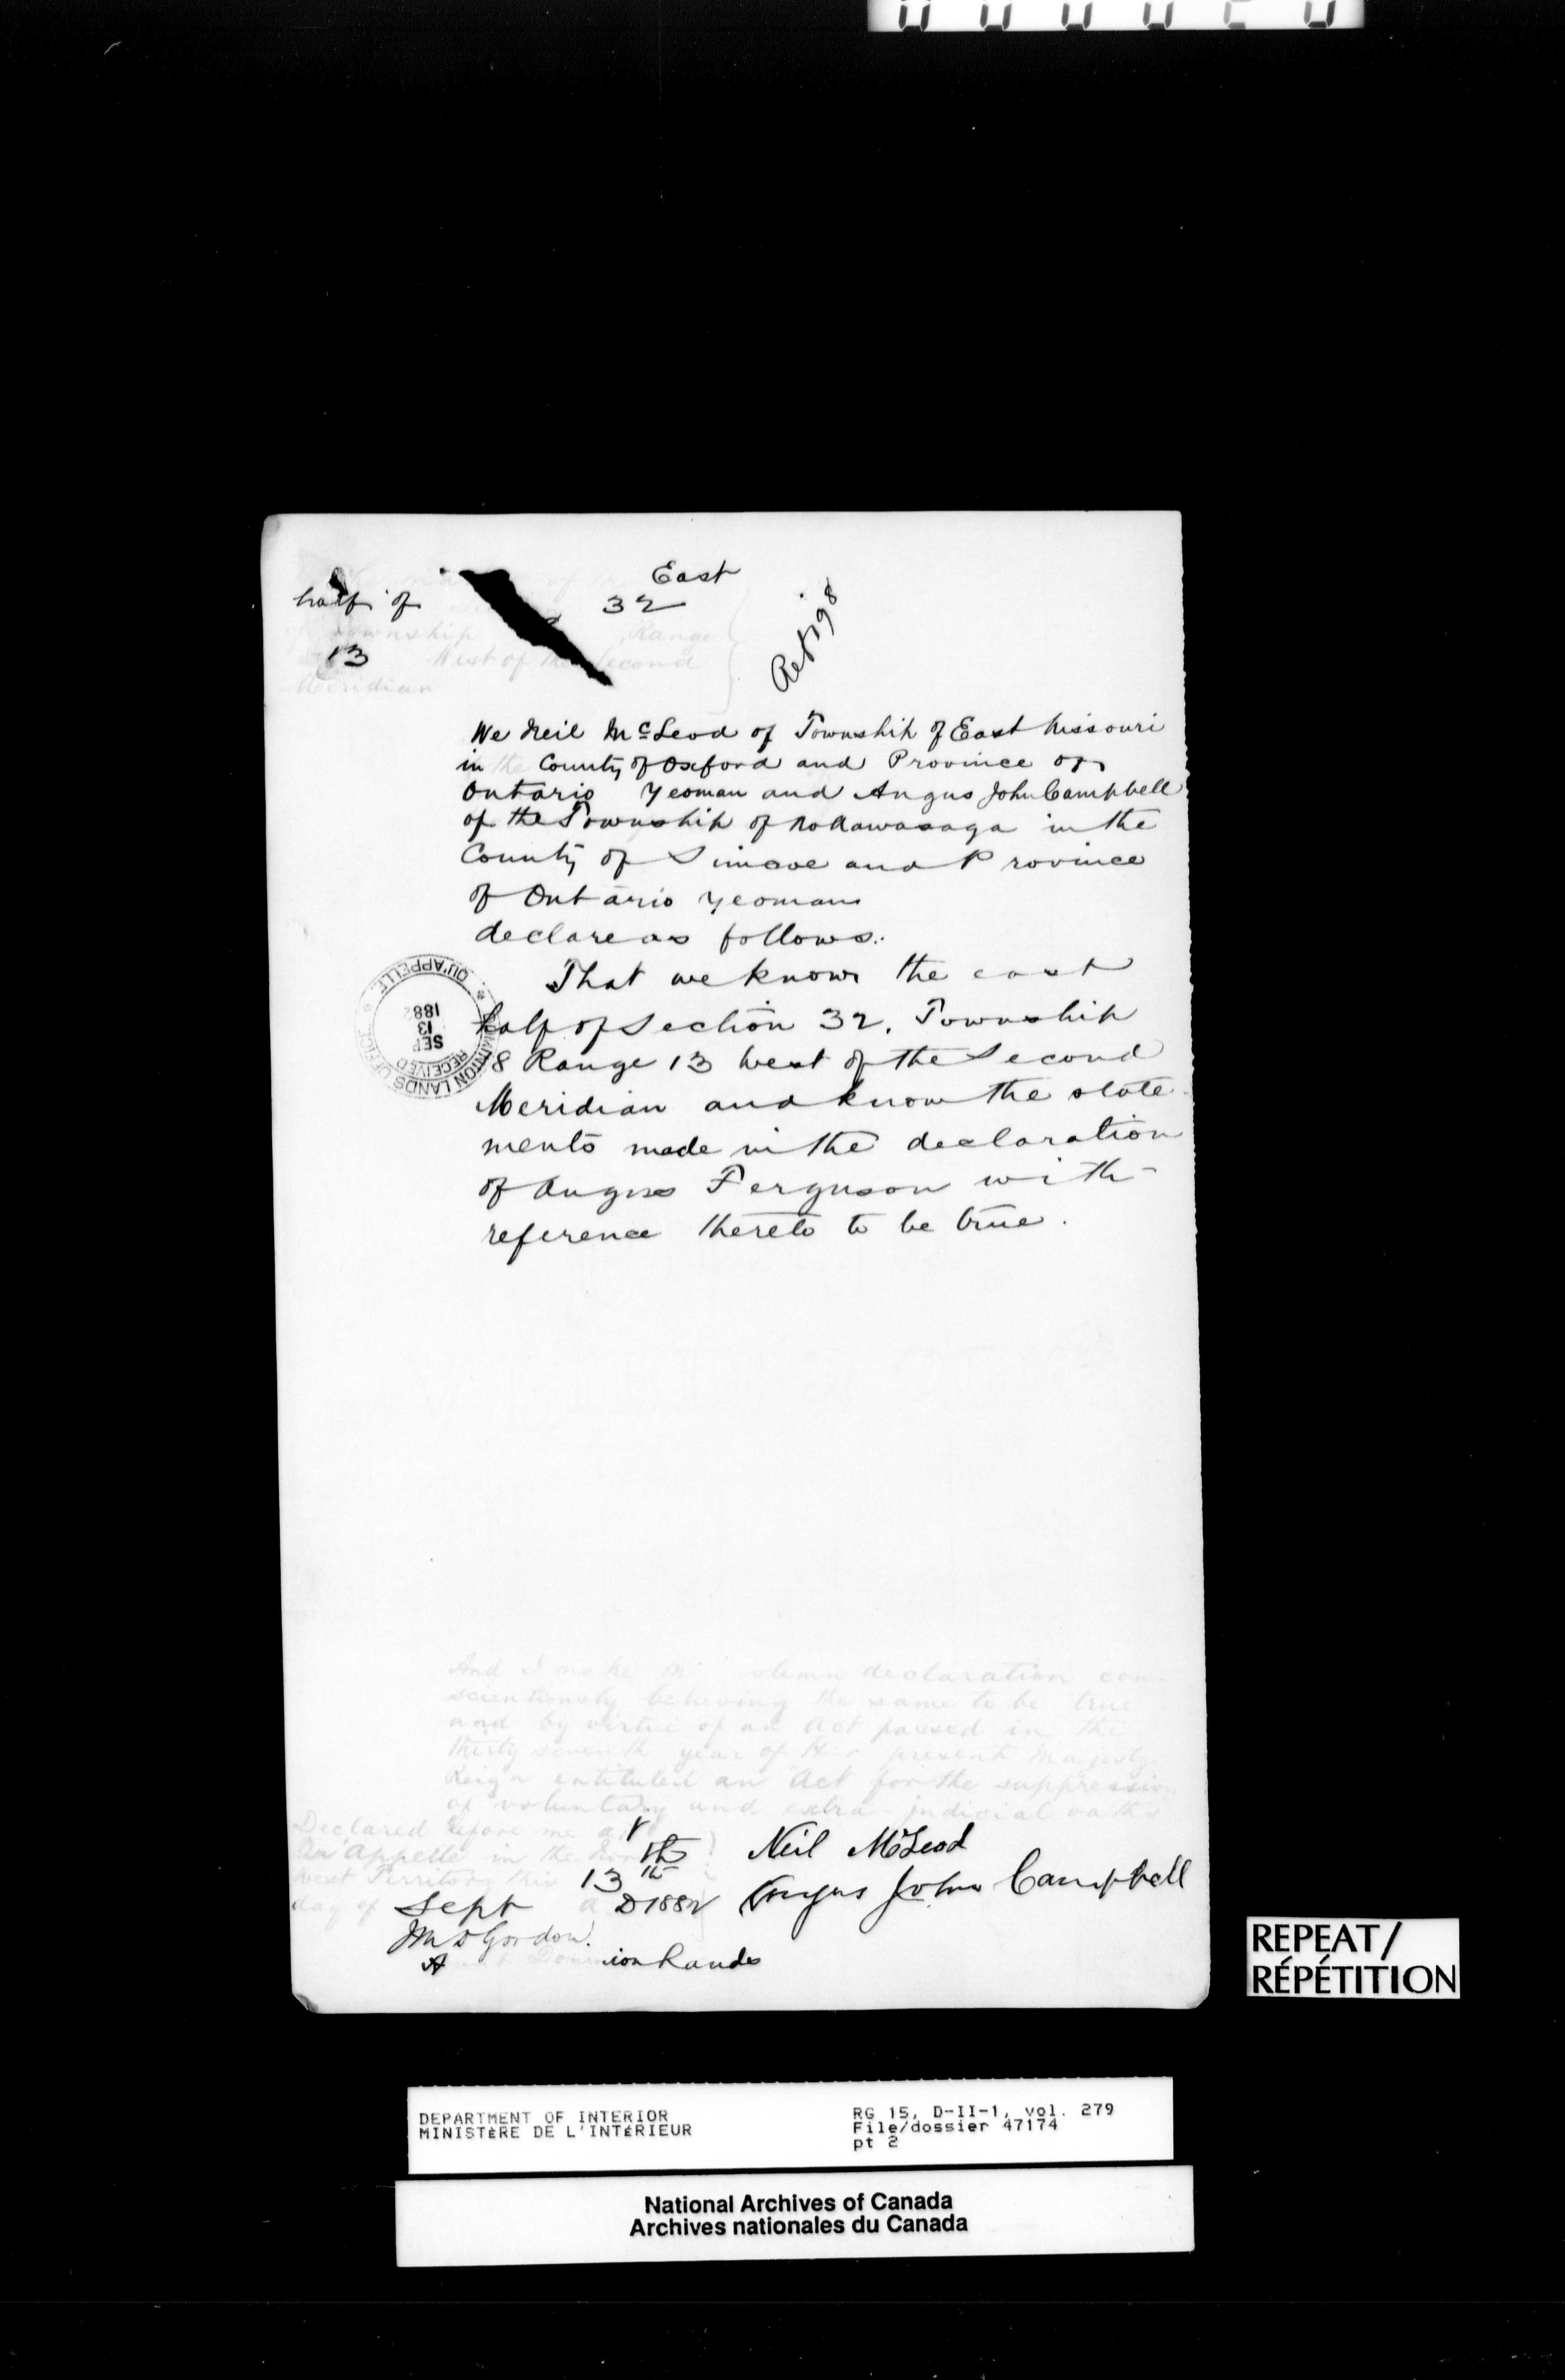 East
half of 32
Township Range
13 West of the Second
Meridian
We Neil McLeod of Township of East Nissouri
in the County of Oxford and Province of
Ontario Yeoman and Angus John Campbell
of the Township of Nottawasaga in the
County of Simcoe and Province
of Ontario yeoman
declare as follows:
That we know the east
half of Section 32, Township
8 Range 13 West of the Second
Meridian and know the state
ments made in the declaration
of Angus Ferguson with
reference thereto to be true.
DOMINION LANDS OFFICE
RECEIVED
SEP
13
1882
QU'APPELLE
And I make this solemn declaration con
scientiously believing the same to be true
and by virtue of an Act passed in the
thirty seventh year of Her present Majesty
Reign entituled an Act for the suppression
of voluntary and extra-judicial oaths
Declared before me at
Qu'Appelle in the North
West Territory this 13th
day of Sept A D 1882
Neil McLeod
Angus John Campbell
Gordon.
Dominion Lands
REPEAT/
RÉPÉTITION
DEPARTMENT OF INTERIOR
MINISTÈRE DE L'INTÉRIEUR
RG 15, D-II-1, vol. 279
File/dossier 47174
pt 2
National Archives of Canada
Archives nationales du Canada